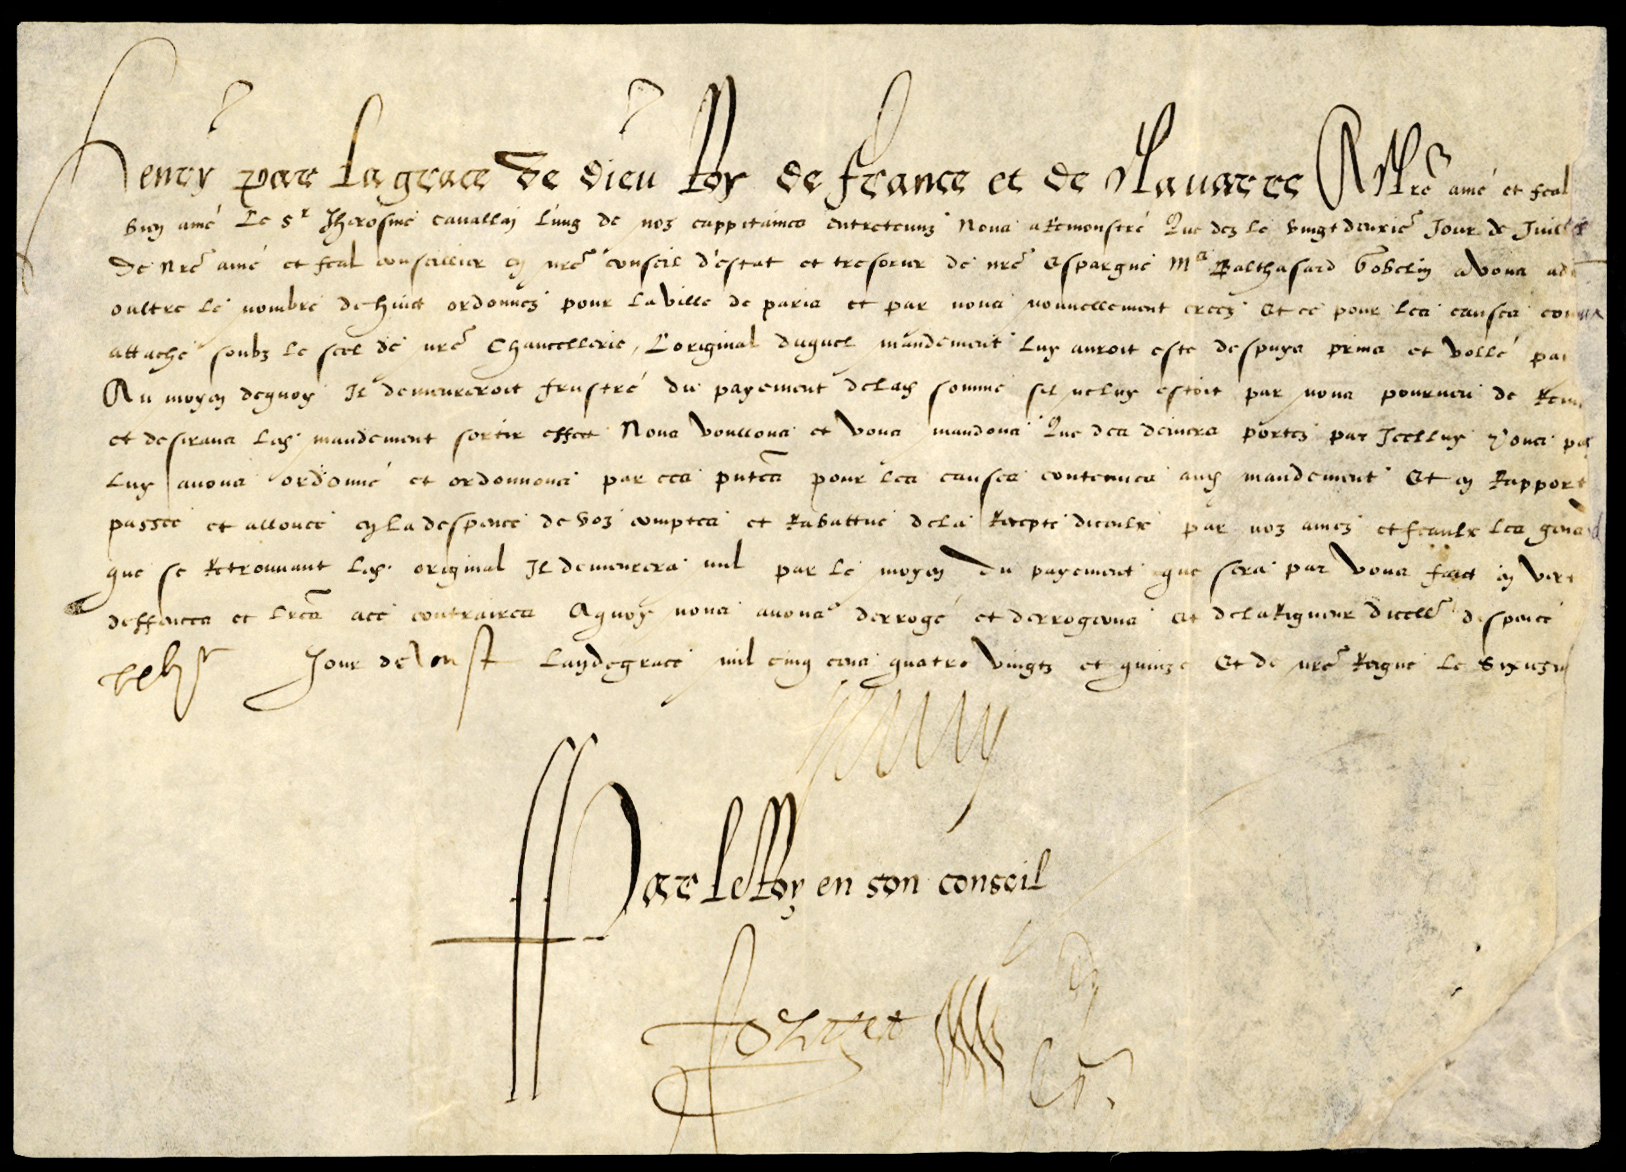 Henry par la grace de dieu Roy de france et de Navarre A Nre amé et feal
bien amé Le Sr Jherosme cavallin l'ung de noz cappitaines entretenuz Nous a Remonstré Que dez le vingtdeuxie Jour de Juillet
De nre amé et feal conseillier en nre conseil d'estat et tresorier de nre espargne Me Balthasard Gobelin avons
oultre le nombre de huict ordonnez pour la ville de paris et par nous nouvellement creez Et ce pour les causes
attaché soubz le scel de nre Chancellerie, L'original duquel mandement luy auroit esté despuys prins et vollé par
Au moyen dequoy Il demeureroit frustré du payement de lad somme sil ne luy estoit par nous pourveu de
et desirans led mandement sortir effect Nous voullons et vous mandons Que des deniers portez par Icelluy vous
luy avons ordonné et ordonnons par ces pntes pour les causes contenues aud mandement Et en Rapport
passee et allouee en la despence de voz comptes et Rabattue de la Recepte diceulx par noz amez et feaulx les gens
que se Retrouvant led original Il demeurera nul par le moyen du payement que sera par vous faict en
deffences et lres a ce contraires Aquoy nous avons derrogé et derrogeons et de la Rigueur dicelle
Jour de Aoust L'an de grace mil cinq cens quatre vingtz et quinze Et de nre Regne le
Henry
Par le Roy en son conseil
Forget